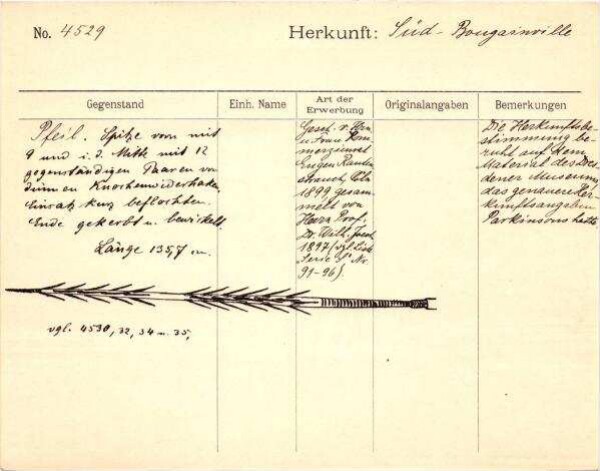 No. 4529
Herkunft: Süd-Bougainville
Gegenstand
Einh. Name
Art der Erwerbung
Originalangaben
Bemerkungen
Pfeil. Spitze vorn mit
9 und i. d. Mitte mit 12
gegenständigen Paaren von
dünnen Knochenwiderhaken,
Einsatz kurz beflochten.
Ende gekerbt u. bewickelt.
Länge 135,7 cm.
Gesch. v. Hrn
u. Frau Kom
merzienrat
Eugen Rauten
strauch, Cöln
1899 gesam
melt von
Herrn Prof.
Dr. Wilh. Joest
1897 (vgl. Liste
Serie Nr.
91-96).
Die Herkunftsbe-
stimmung be-
ruht auf dem
Material des Dres
dener Museums,
das genauere Her-
kunftsangaben
Parkinsons hatte.
vgl. 4530, 32, 34 u. 35,